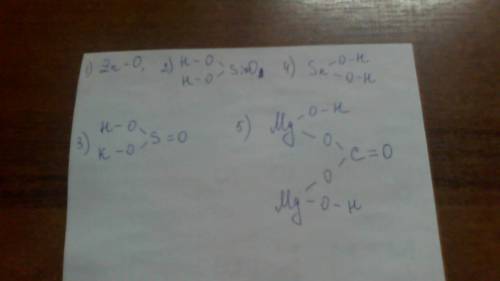 1) Zn-O, 2) H-O
H-O Si=O, 4) Sn O-H
O-H
3) H-O
K-O S=O
5) Mg O-H
O
C=O
O
Mg-O-H